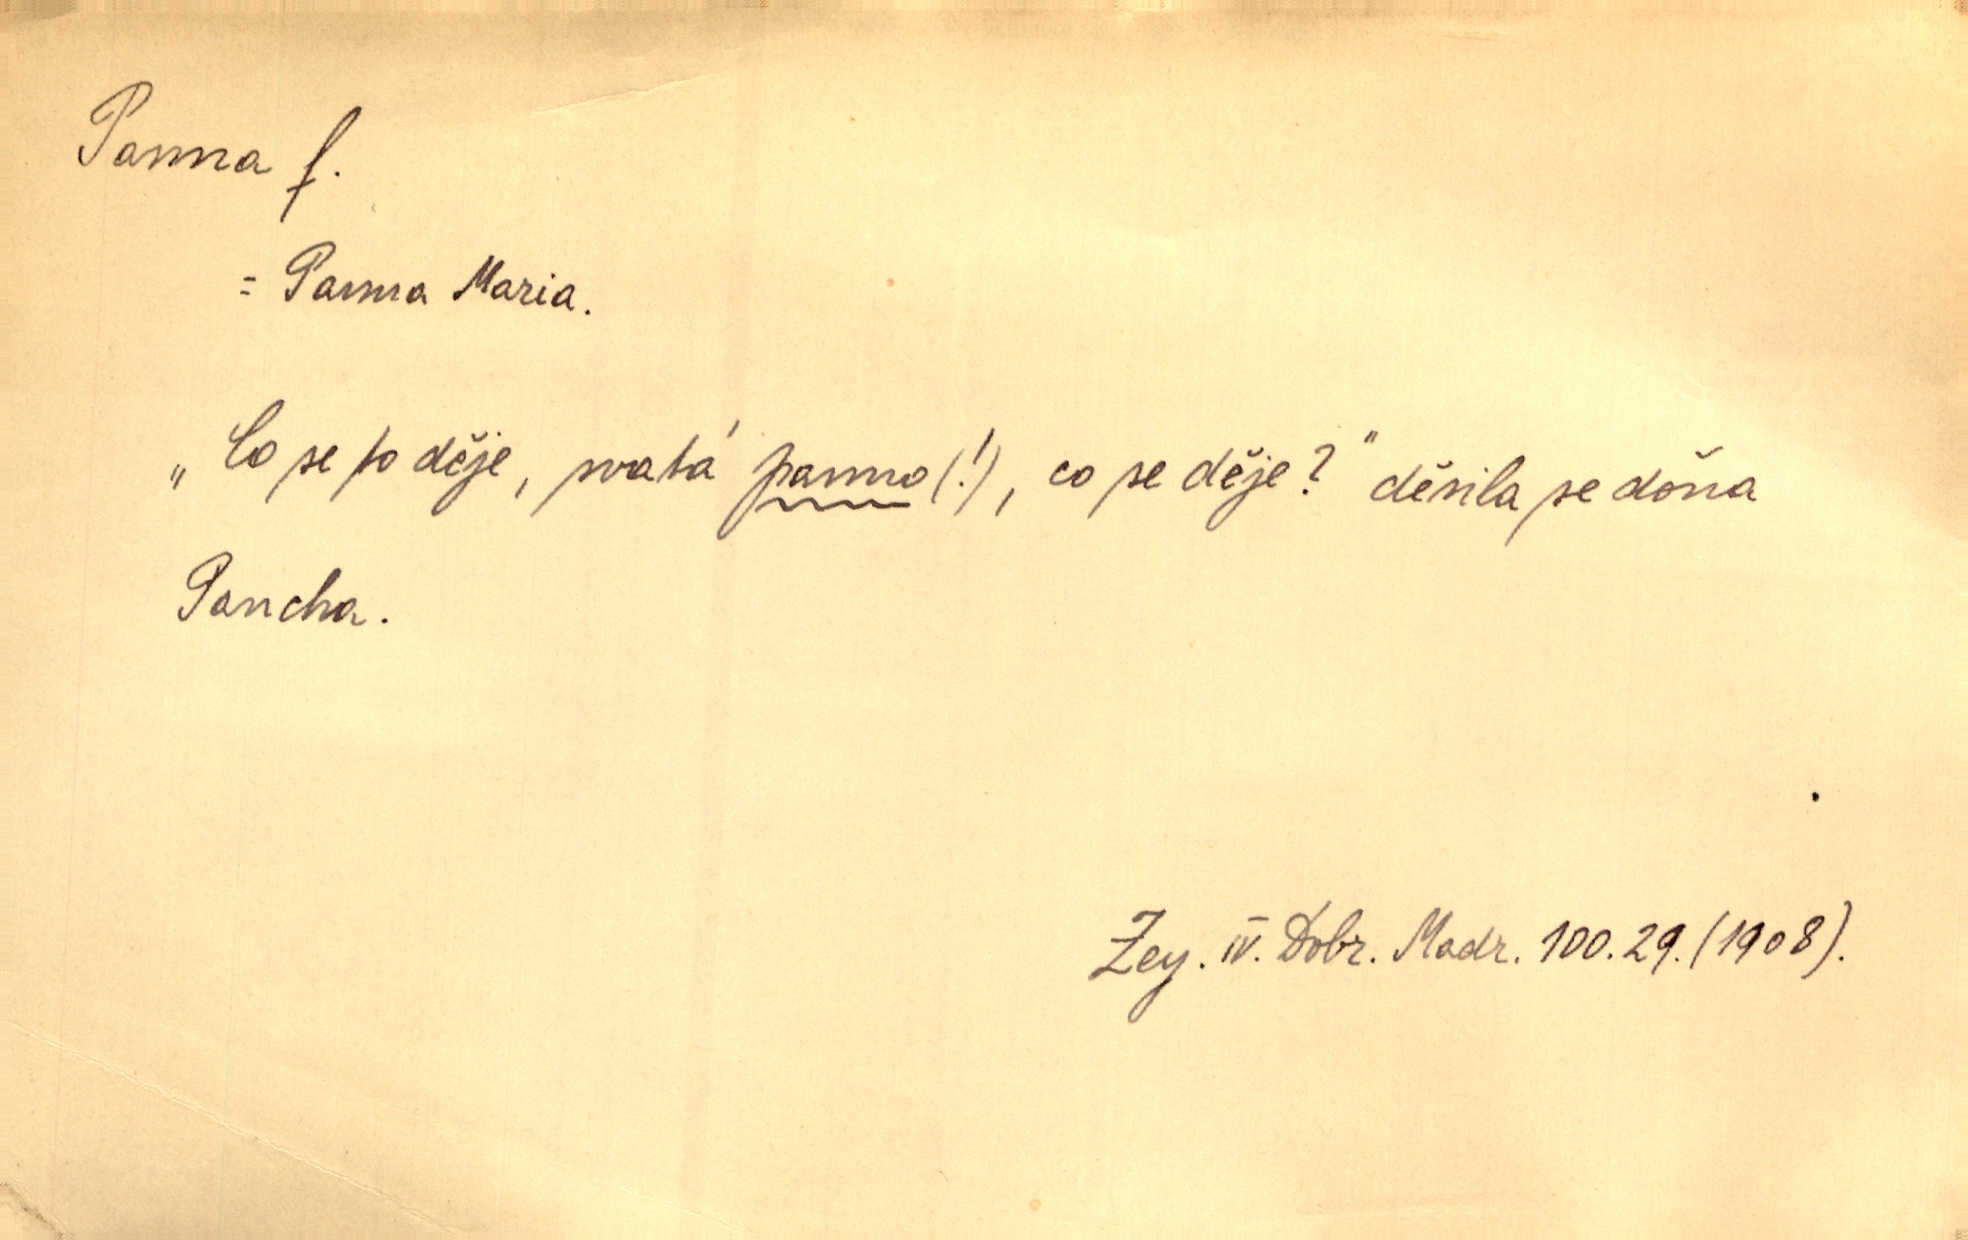 Panna f.
= Panna Maria.
„Co se to děje, svatá panno (!), co se děje?" děsila se doña
Pancha.
Zey. IV. Dobr. Madr. 100.29. (1908).